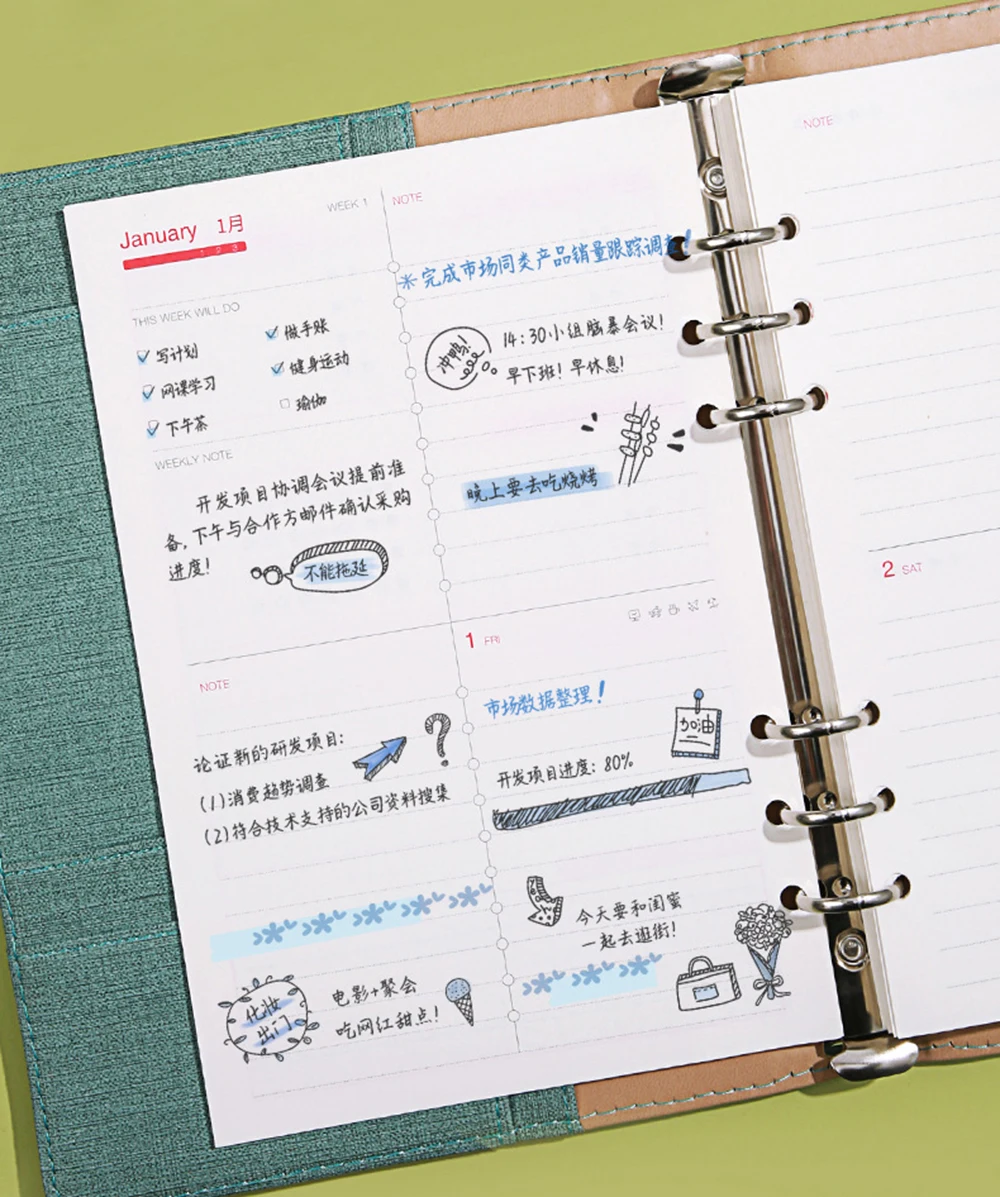 January 1月
1 2 3
WEEK 1
THIS WEEK WILL DO
写计划
做手账
网课学习
健身运动
下午茶
瑜伽
WEEKLY NOTE
开发项目协调会议提前准
备,下午与合作方邮件确认采购
进度!
不能拖延
NOTE
*完成市场同类产品销量跟踪调查!
冲鸭!
14:30小组脑暴会议!
早下班!早休息!
晚上要去吃烧烤
NOTE
论证新的研发项目:
(1)消费趋势调查
(2)符合技术支持的公司资料搜集
化妆
出门
电影+聚会
吃网红甜点!
1 FRI
市场数据整理!
加油
开发项目进度:80%
今天要和闺蜜
一起去逛街!
NOTE
2 SAT